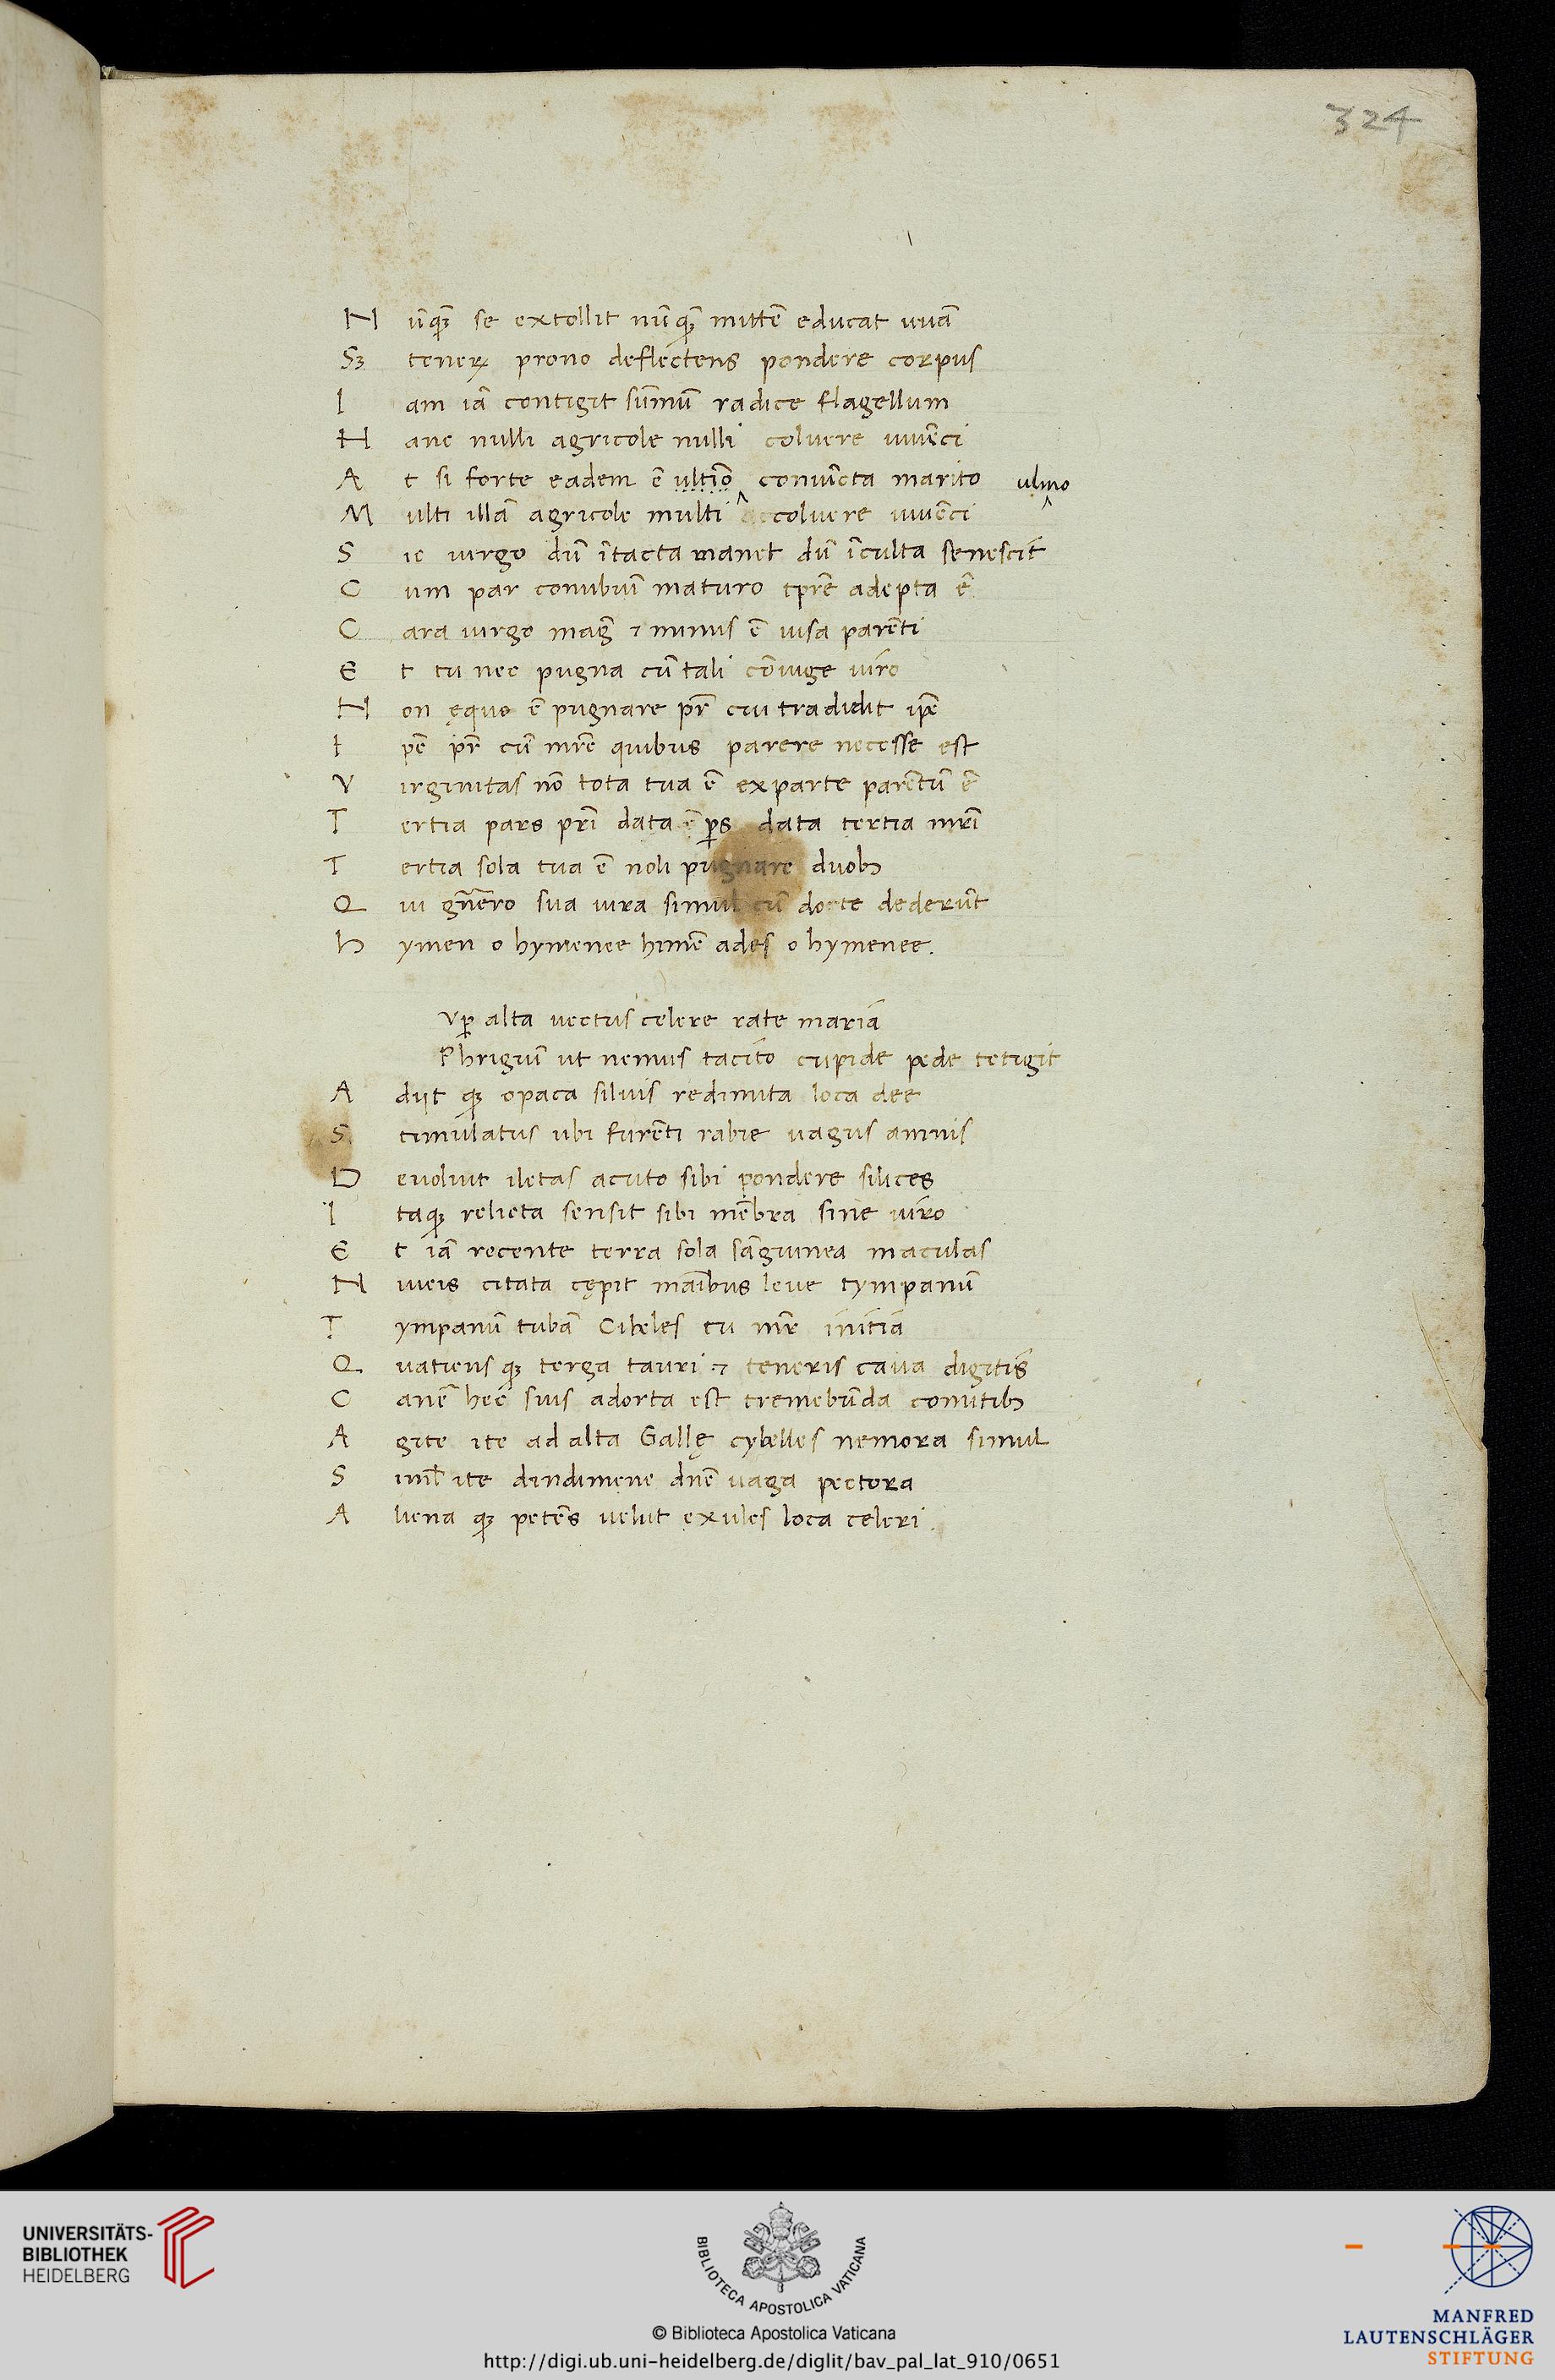 324
N ūqȝ se extollit nūqȝ mittē educat uuā
Sȝ tenerꝝ prono deflectens pondere corpus
I am iā contigit sūmū radice flagellum
H anc nulli agricole nulli coluere iuuēci
A t si forte eadem ē ultiō coniūcta marito ulmo
M ulti illā agricole multi accoluere iuuēci
S ic uirgo dū ītacta manet dū īculta senescit
C um par conubiū maturo tp̄re adepta ē
C ara uirgo maḡ ⁊ minus ē uisa parēti
E t tu nec pugna cū tali cōiuge uiro
N on ęquo ē pugnare pr̄ cui tradidit ip̄e
I pē pr̄ cū mr̄e quibus parere necesse est
V irginitas nō tota tua ē exparte parētū ē
T ertia pars pr̄i data ē ꝑs data tertia mr̄i
T ertia sola tua ē noli pugnare duobꝫ
Q ui gn̄ero sua iura simul cū docte dederūt
h ymen o hymenee himē ades o hymenee.
Vꝑ alta uectus celere rate mariā
Phrigiū ut nemus tacito cupide pede tetigit
A diit qȝ opaca siluis redimita loca dee
S timulatus ubi furēti rabie uagus amnis
D euoluit iletas acuto sibi pondere silices
I taqȝ relicta sensit sibi mēbra sine uiro
E t iā recente terra sola sāguinea maculas
N iueis citata cępit māibus leue tympanū
T ympanū tubā Cibeles tu mr̄e initia
Q uatiens qȝ terga tauri ⁊ teneris caua digitis
C anē hec suis adorta est tremebūda comitibꝫ
A gite ite ad alta Gallę cybelles nemora simul
S iml̄ ite dindimene dn̄e uaga pectora
A liena qȝ petēs uelut exules loca celeri.
UNIVERSITÄTS-
BIBLIOTHEK
HEIDELBERG
BIBLIOTECA APOSTOLICA VATICANA
© Biblioteca Apostolica Vaticana
http://digi.ub.uni-heidelberg.de/diglit/bav_pal_lat_910/0651
MANFRED
LAUTENSCHLÄGER
STIFTUNG